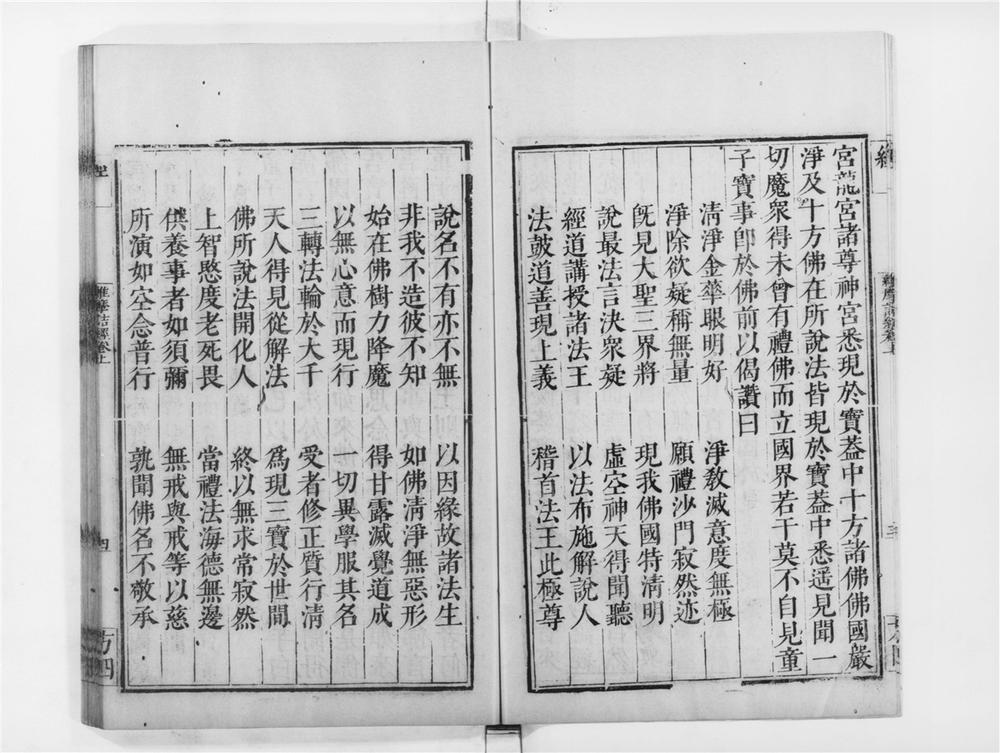 宮龍宮諸尊神宮悉現於寶葢中十方諸佛佛國嚴
淨及十方佛在所說法皆現於寶葢中悉遥見聞一
切魔衆得未曾有禮佛而立國界若干莫不自見童
子寶事卽於佛前以偈讚曰
清淨金華眼明好 淨敎滅意度無極
淨除欲疑稱無量 願禮沙門寂然迹
旣見大聖三界將 現我佛國特淸明
說最法言決衆疑 虛空神天得聞聽
經道講授諸法王 以法布施解說人
法鼓道善現上義 稽首法王此極尊
說名不有亦不無 以因緣故諸法生
非我不造彼不知 如佛淸淨無惡形
始在佛樹力降魔 得甘露滅覺道成
以無心意而現行 一切異學服其名
三轉法輪於大千 受者修正質行淸
天人得見從解法 爲現三寶於世間
佛所說法開化人 終以無求常寂然
上智愍度老死畏 當禮法海德無邊
供養事者如須彌 無戒與戒等以慈
所演如空念普行 孰聞佛名不敬承
維摩詰經卷上
四